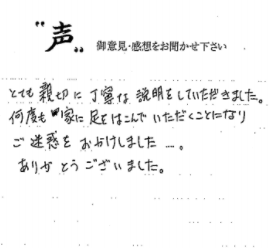 "声"
御意見・感想をお聞かせ下さい
とても親切に丁寧な説明をしていただきました。
何度も家に足をはこんでいただくことになり
ご迷惑をおかけしました…。
ありがとうございました。